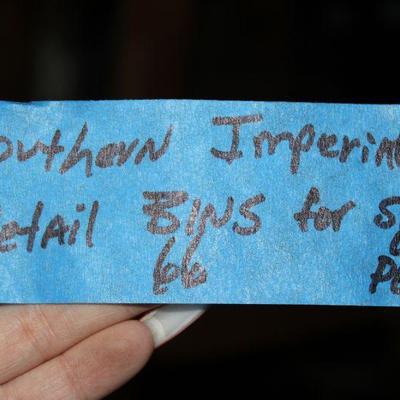 outhern Imperia
etail BINS for S
66 Pe